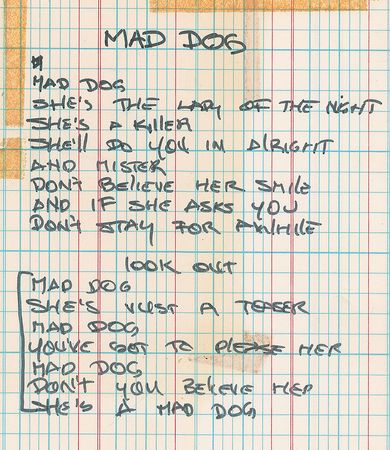 MAD DOG
MAD DOG
SHE'S THE LADY OF THE NIGHT
SHE'S A KILLER
SHE'LL DO YOU IN ALRIGHT
AND MISTER
DON'T BELIEVE HER SMILE
AND IF SHE ASKS YOU
DON'T STAY FOR AWHILE
LOOK OUT
MAD DOG
SHE'S JUST A TEASER
MAD DOG
YOU'VE GOT TO PLEASE HER
MAD DOG
DON'T YOU BELIEVE HER
SHE'S A MAD DOG